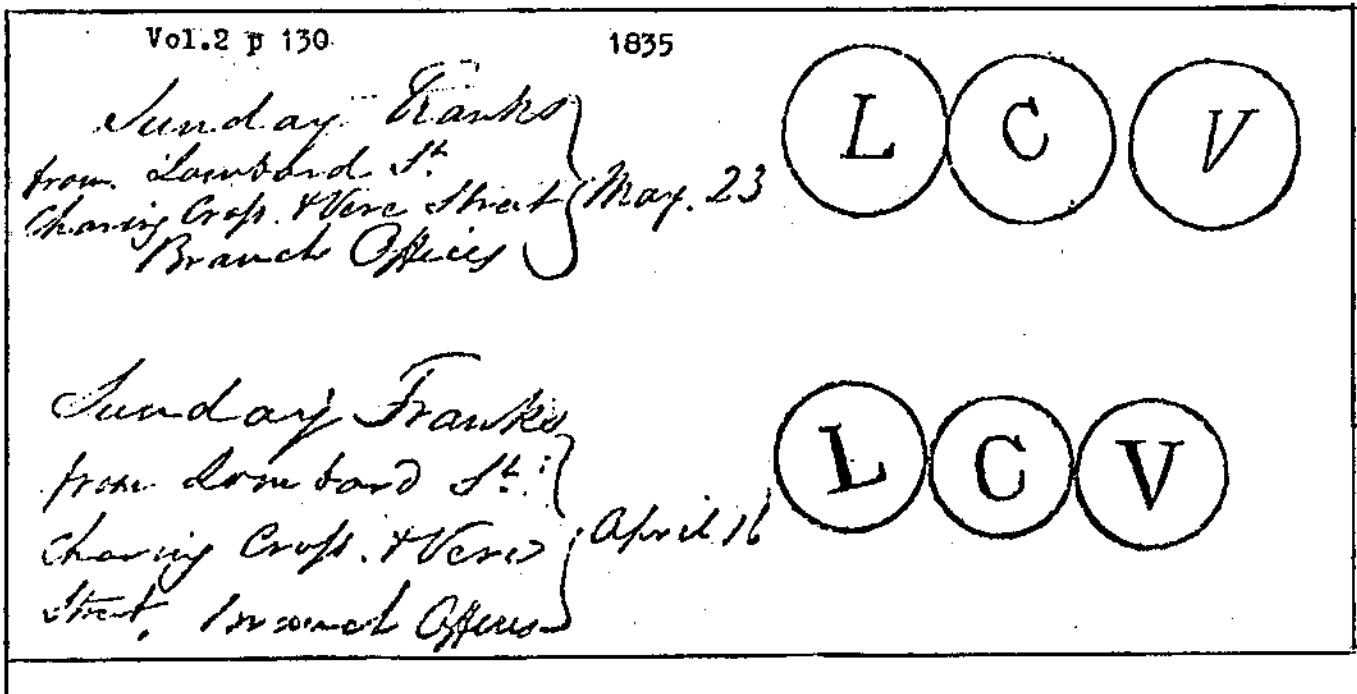 Vol.2 p 130 1835
Sunday Franks
from Lombard St.
Charing Cross. & Vere Street
Branch Offices
May. 23
L C V
Sunday Franks
from Lombard St.
Charing Cross. & Vere
Street, Branch Offices
April 16
L C V